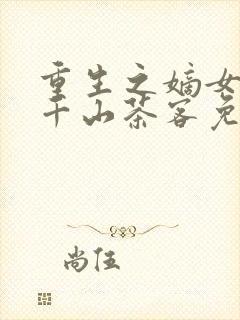 重生之嫡女
千山茶客免
尚伍